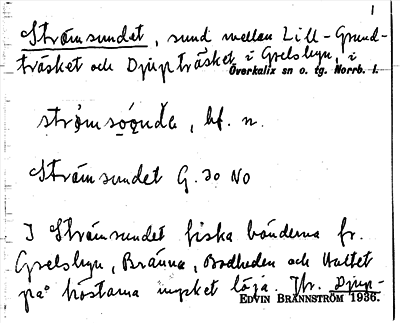 1
Strömsundet, sund mellan Lill-Grund-
träsket och Djupträsket i Grelsbyn, i
Överkalix sn o. tg. Norrb. l.
bf. n.
Strömsundet G. 30 NO
I Strömsundet fiska bönderna fr.
Grelsbyn, Bränna, Bodheden och
på höstarna mycket löja. Jfr. Djup-
EDVIN BRÄNNSTRÖM 1936.